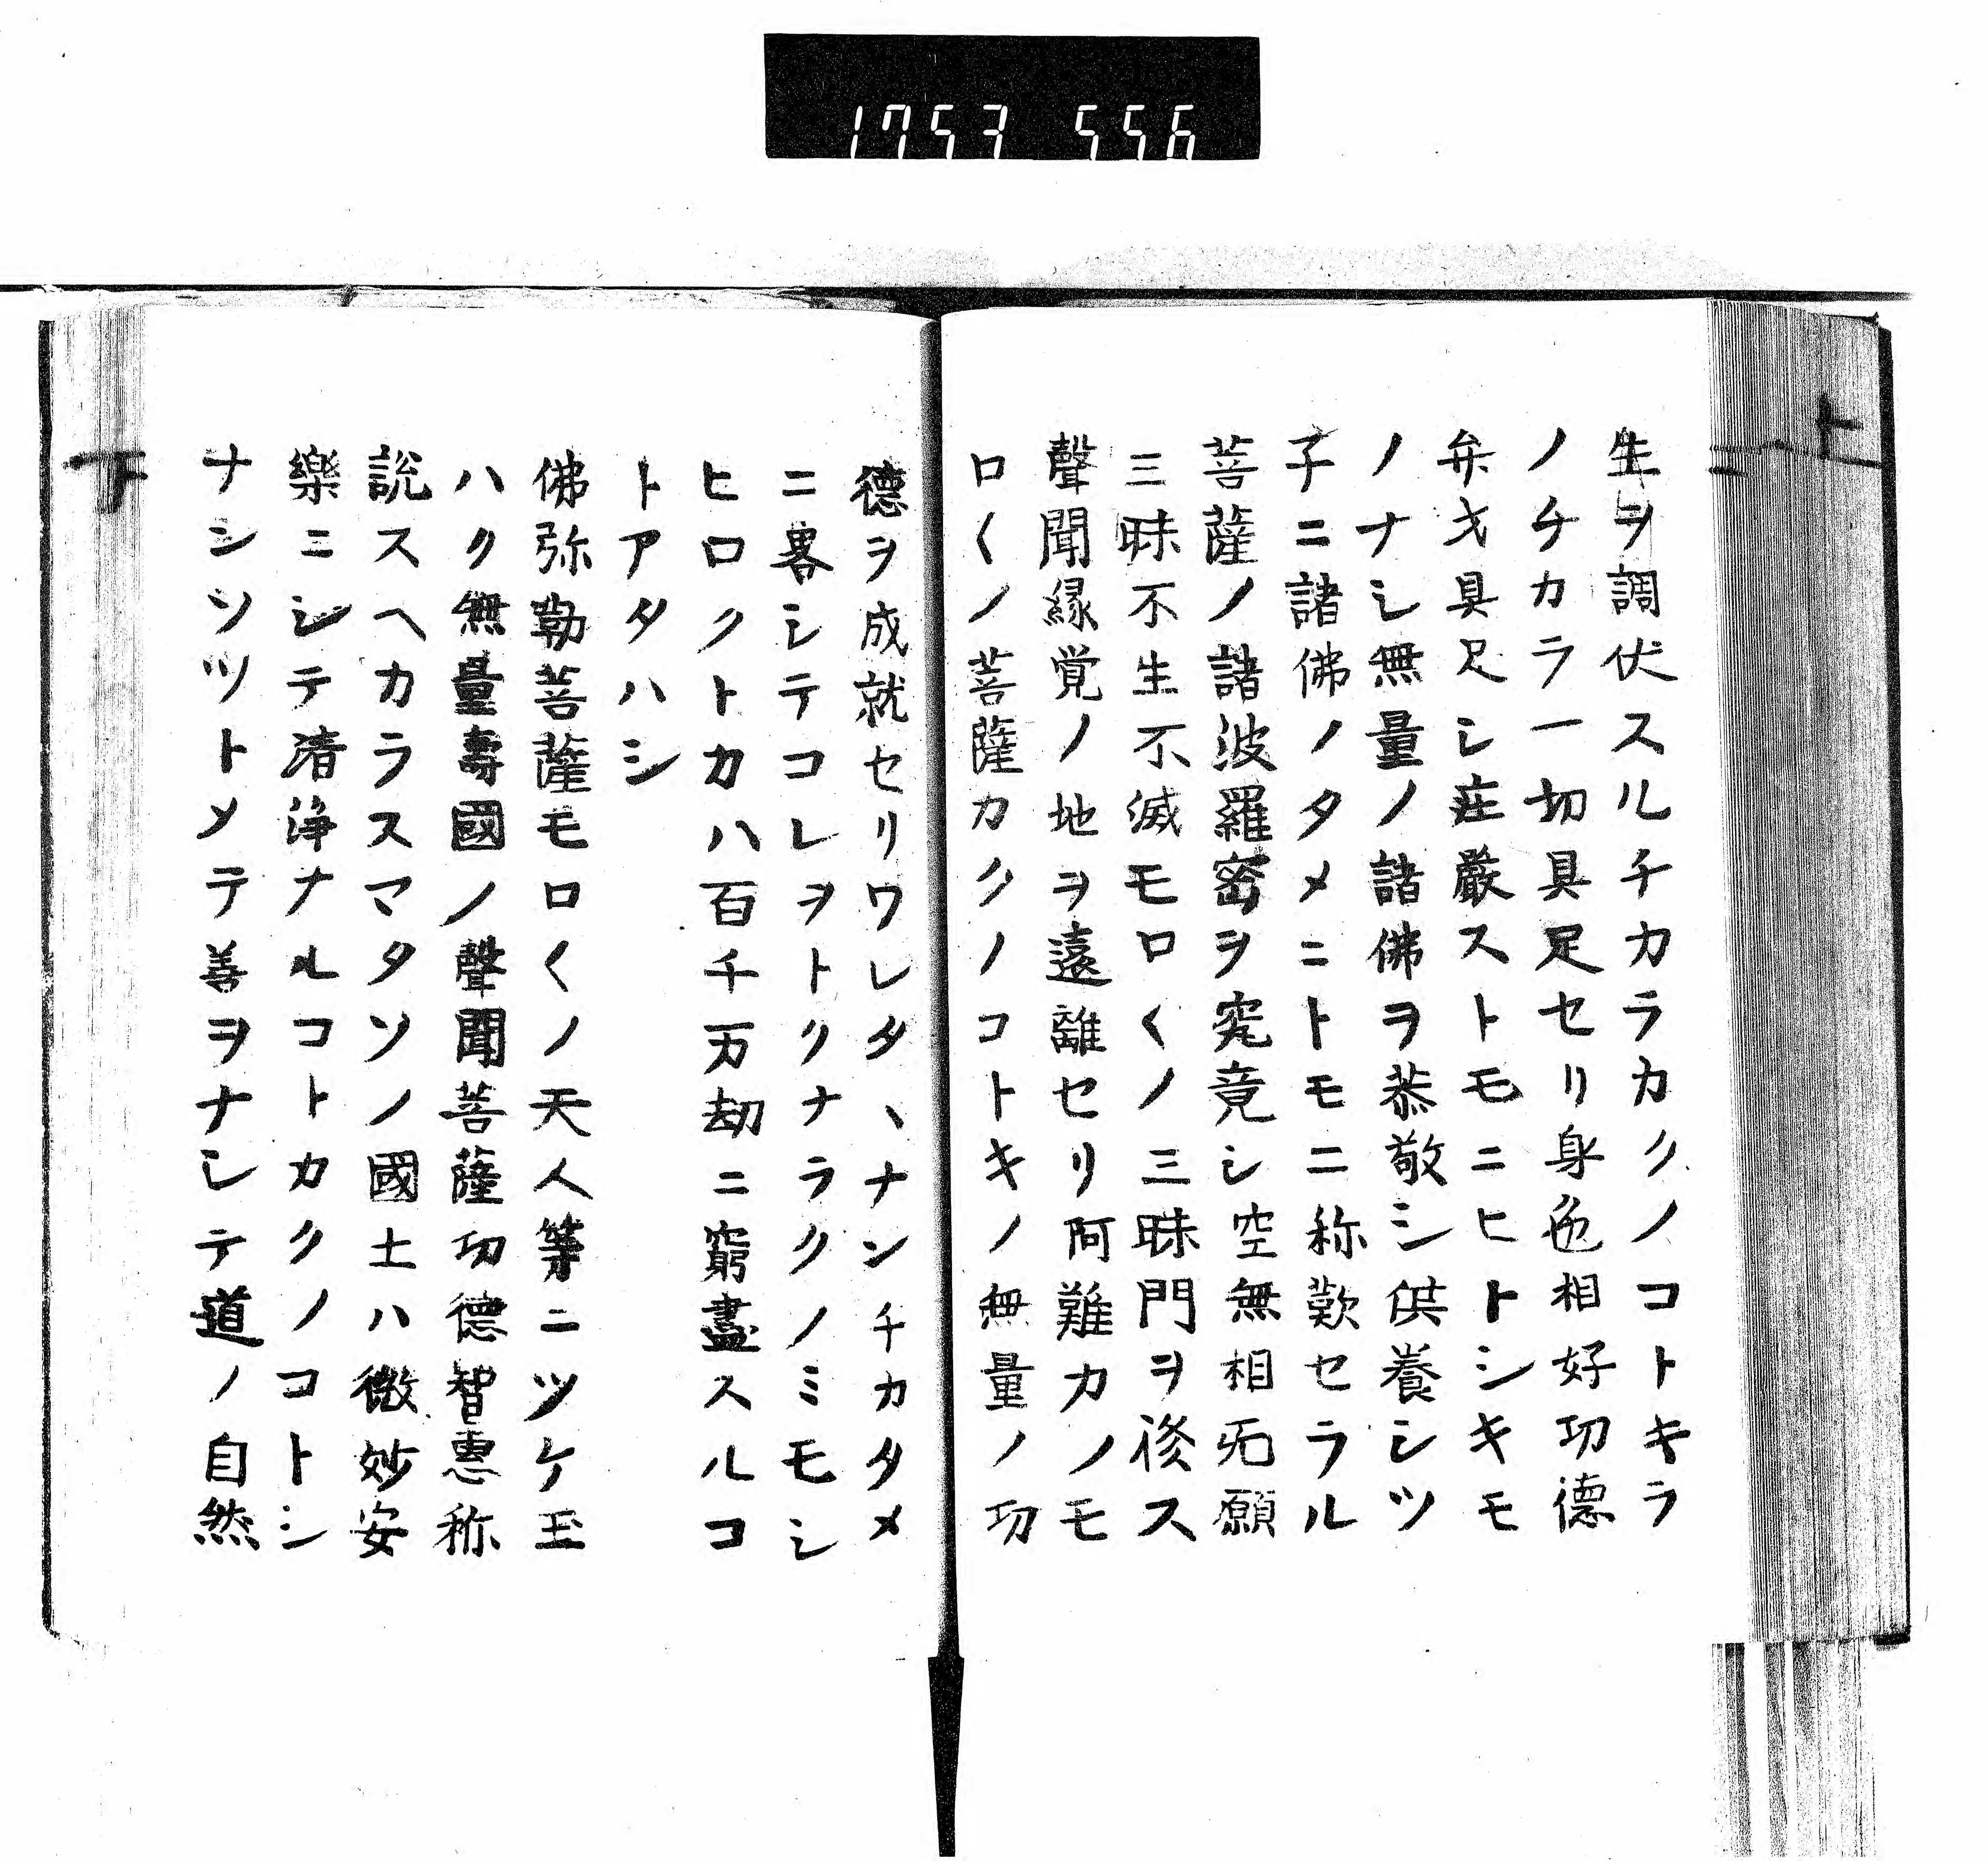 1753 556
上
生ヲ調伏スルチカラカクノコトキラ
ノチカラ一切具足セリ身色相好功德
弁才具足シ庄嚴ストモニヒトシキモ
ノナシ無量ノ諸佛ヲ恭敬シ供養シツ
子ニ諸佛ノタメニトモニ称歎セラル
菩薩ノ諸波羅密ヲ究竟シ空無相无願
三昧不生不滅モロ〱ノ三昧門ヲ修ス
聲聞縁覚ノ地ヲ遠離セリ阿難カノモ
ロ〱ノ菩薩カクノコトキノ無量ノ功
德ヲ成就セリワレタヽナンチカタメ
ニ畧シテコレヲトクナラクノミモシ
ヒロクトカハ百千万劫ニ窮盡スルコ
トアタハシ
佛弥勒菩薩モロ〱ノ天人等ニツケ玉
ハク無量壽國ノ聲聞菩薩功德智惠称
説スヘカラスマタソノ國土ハ微妙安
樂ニシテ清浄ナルコトカクノコトシ
ナンソツトメテ善ヲナシテ道ノ自然
下